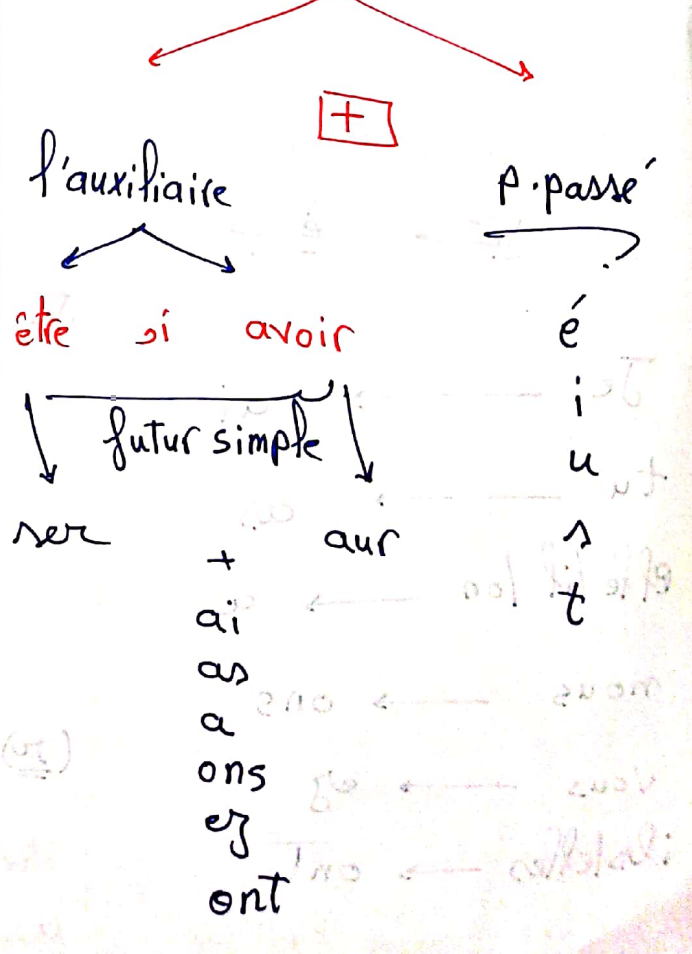 +
l'auxiliaire p.passé
être si avoir é
i
futur simple u
ser aur s
+ t
ai
as
a
ons
ez
ont